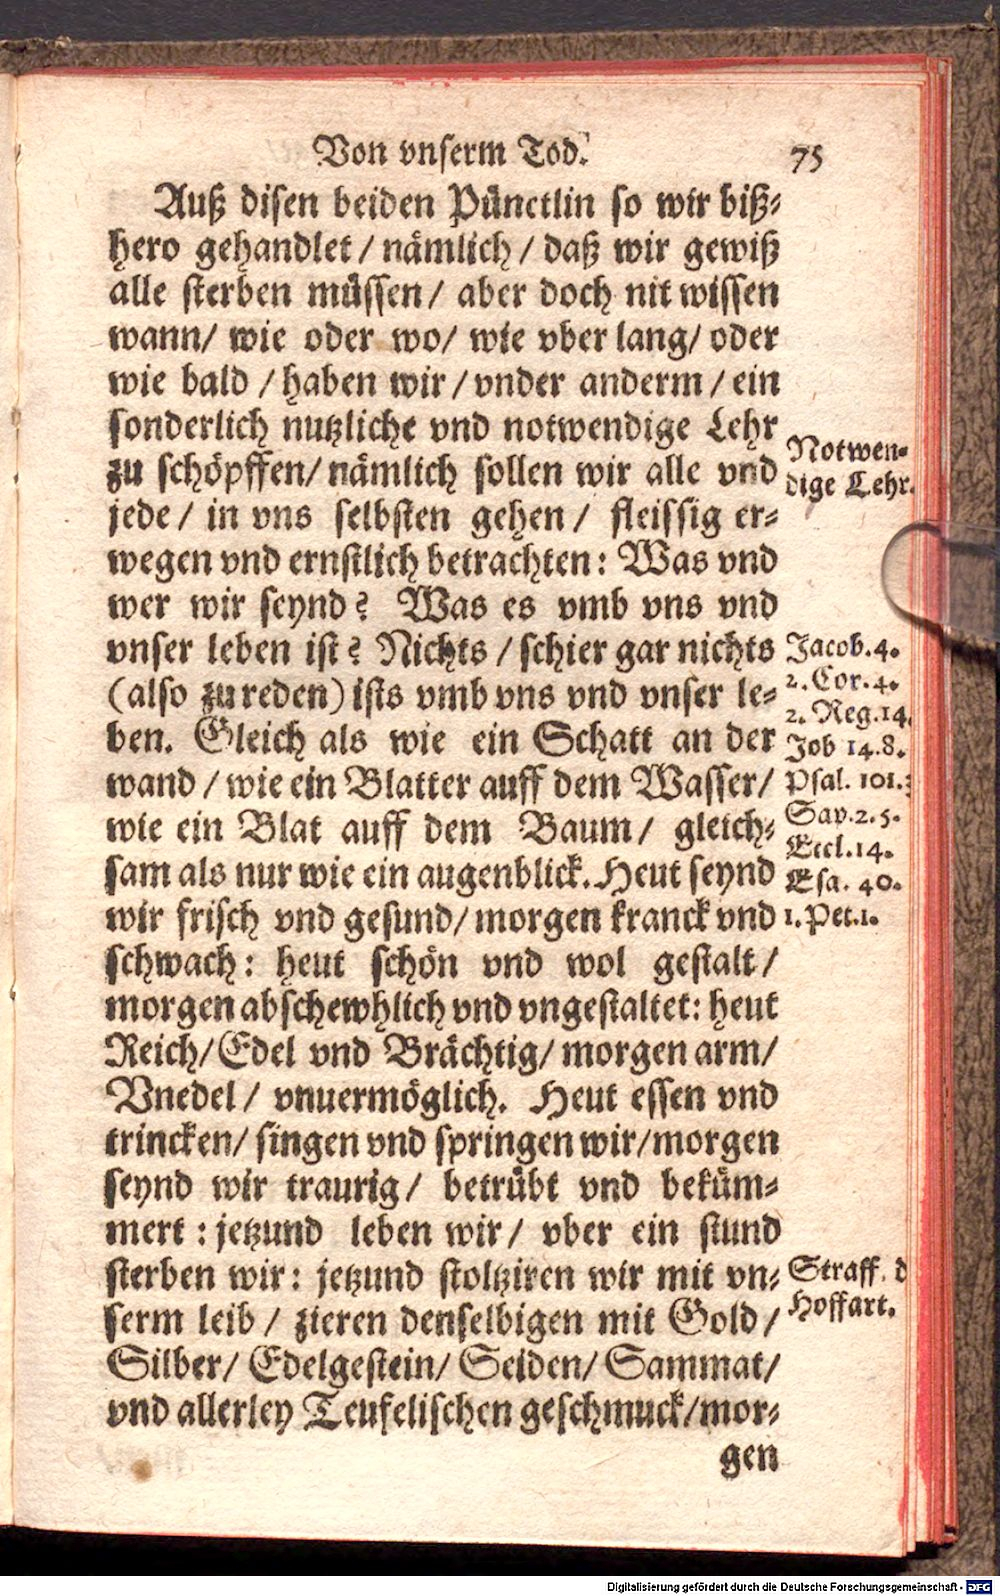 Von vnserm Tod. 75
Auß disen beiden Pünctlin so wir biß-
hero gehandlet / nämlich / daß wir gewiß
alle sterben müssen / aber doch nit wissen
wann / wie oder wo / wie vber lang / oder
wie bald / haben wir / vnder anderm / ein
sonderlich nutzliche vnd notwendige Lehr
zu schöpffen / nämlich sollen wir alle vnd
jede / in vns selbsten gehen / fleissig er-
wegen vnd ernstlich betrachten: Was vnd
wer wir seynd? Was es vmb vns vnd
vnser leben ist? Nichts / schier gar nichts
(also zu reden) ists vmb vns vnd vnser le-
ben. Gleich als wie ein Schatt an der
wand / wie ein Blatter auff dem Wasser /
wie ein Blat auff dem Baum / gleich-
sam als nur wie ein augenblick. Heut seynd
wir frisch vnd gesund / morgen kranck vnd
schwach: heut schön vnd wol gestalt /
morgen abschewhlich vnd vngestaltet: heut
Reich / Edel vnd Brächtig / morgen arm /
Vnedel / vnuermöglich. Heut essen vnd
trincken / singen vnd springen wir / morgen
seynd wir traurig / betrübt vnd beküm-
mert: jetzund leben wir / vber ein stund
sterben wir: jetzund stoltziren wir mit vn-
serm leib / zieren denselbigen mit Gold /
Silber / Edelgestein / Seiden / Sammat /
vnd allerley Teufelischen geschmuck / mor-
gen
Notwen-
dige Lehr.
Jacob.4.
2. Cor.4.
2. Reg.14.
Job 14.8.
Psal. 101.
Sap.2.5.
Eccl.14.
Esa. 40.
1. Pet.1.
Straff. d
Hoffart.
Digitalisierung gefördert durch die Deutsche Forschungsgemeinschaft - DFG